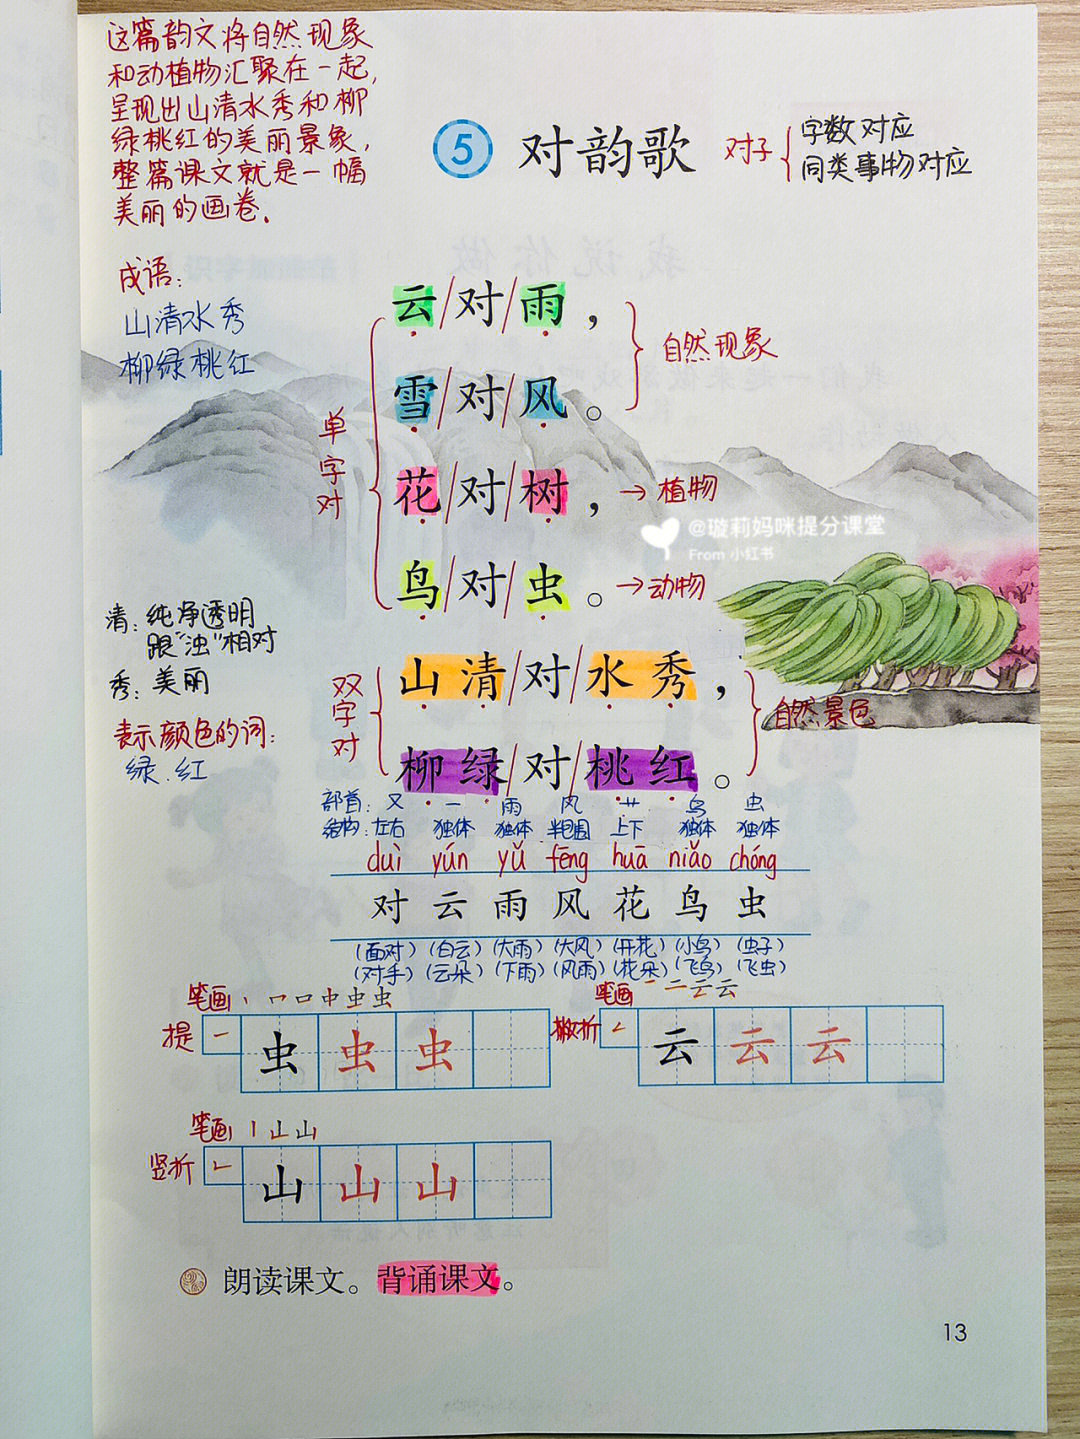 这篇韵文将自然现象
和动植物汇聚在一起,
呈现出山清水秀和柳
绿桃红的美丽景象,
整篇课文就是一幅
美丽的画卷.
5 对韵歌
对子
字数对应
同类事物对应
成语:
山清水秀
柳绿桃红
单字对
云/对/雨，
雪/对/风。
自然现象
花/对/树，
→植物
鸟/对/虫。
→动物
@璇莉妈咪提分课堂
From 小红书
清:纯净透明
跟"浊"相对
秀:美丽
表示颜色的词:
绿.红
双字对
山清/对/水秀，
柳绿/对/桃红。
自然景色
部首: 又 一 雨 风 艹 鸟 虫
结构: 左右 独体 独体 半包围 上下 独体 独体
duì yún yǔ fēng huā niǎo chóng
对 云 雨 风 花 鸟 虫
(面对) (白云) (大雨) (大风) (开花) (小鸟) (虫子)
(对手) (云朵) (下雨) (风雨) (花朵) (飞鸟) (飞虫)
笔画
提
虫 虫 虫
笔画
撇折
云 云 云
笔画
竖折
山 山 山
朗读课文。背诵课文。
13